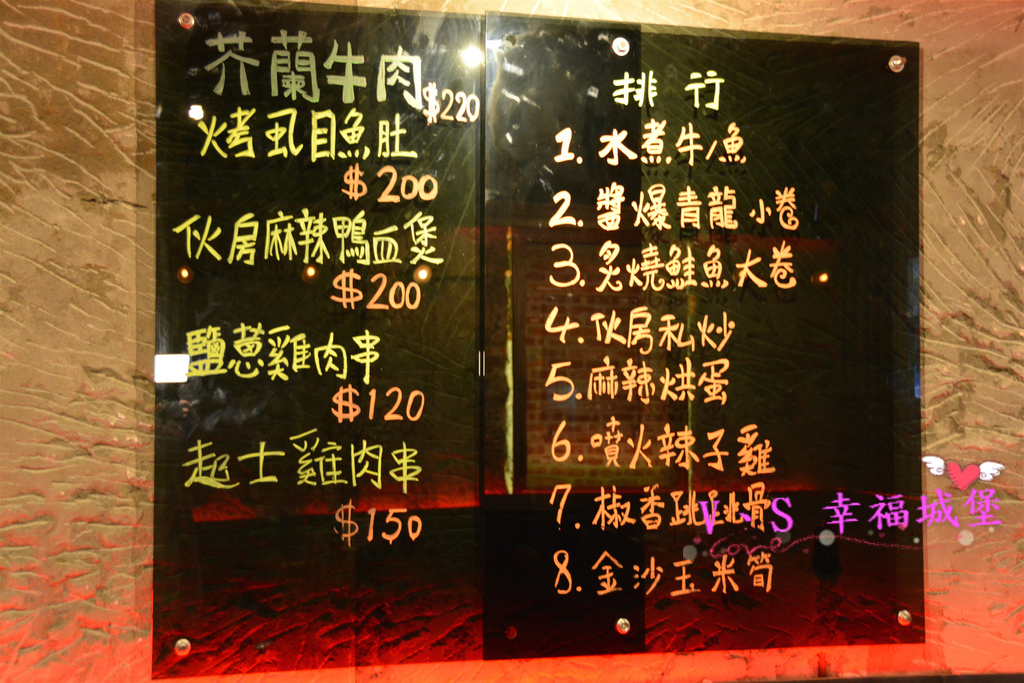 芥蘭牛肉
$220
烤虱目魚肚
$200
伙房麻辣鴨血煲
$200
鹽蔥雞肉串
$120
起士雞肉串
$150
排行
1. 水煮牛/魚
2. 醬爆青龍小卷
3. 炙燒鮭魚大卷
4. 伙房私炒
5. 麻辣烘蛋
6. 噴火辣子雞
7. 椒香跳跳骨
8. 金沙玉米筍
幸福城堡